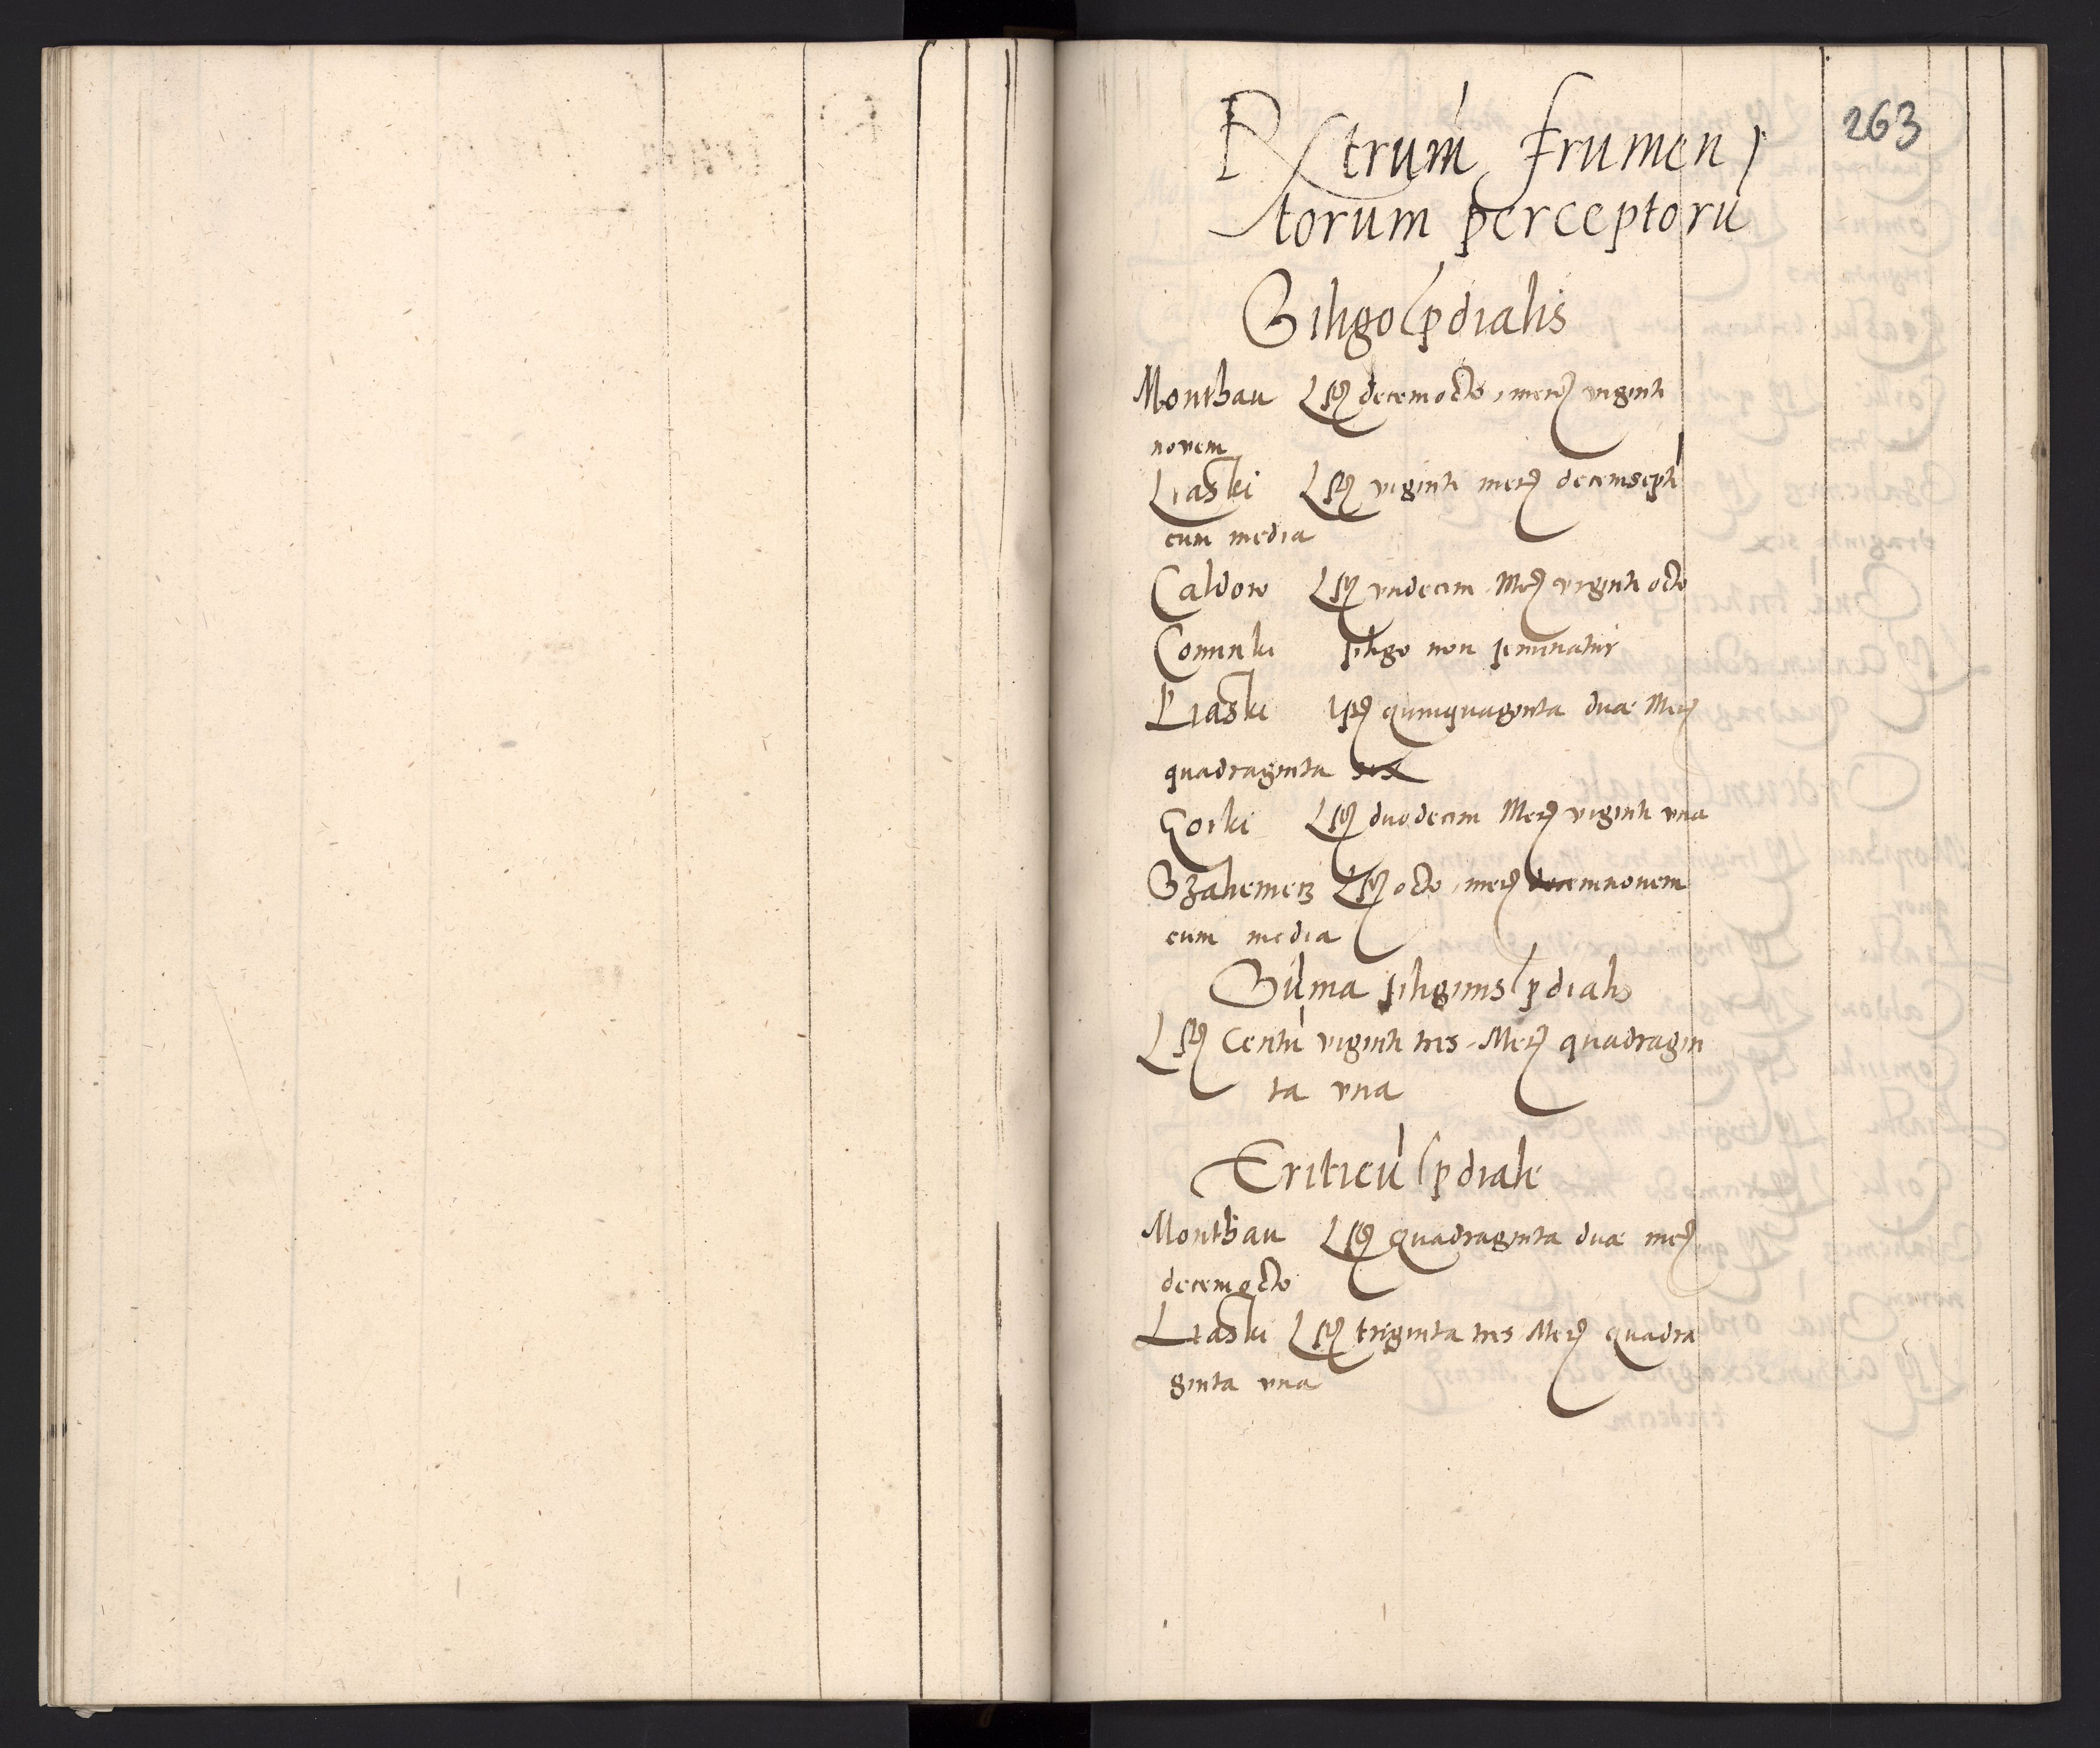 263
Rx̄trum frumen
torum perceptorū
Siligo p̄dialis
Monthau Lſtz decemocto, menſ viginti
novem
Liaski Lſtz viginti menſ decemseptē
cum media
Caldow Lſtz vndecim Menſ viginti octo
Cominki ſiligo non ſeminatur
Liaski Lſtz quinquaginta duæ Menſ
quadraginta sex
Gorki Lſtz duodecim Menſ viginti vna
Szalemerz Lſtz octo, menſ decemnouem
cum media
Sūma ſiliginis p̄dialis
Lſtz Centū viginti tres Menſ quadragin
ta vna
Triticū p̄diale
Monthau Lſtz quadraginta duæ menſ
decemocto
Liaski Lſtz triginta tres Menſ quadra
ginta vna